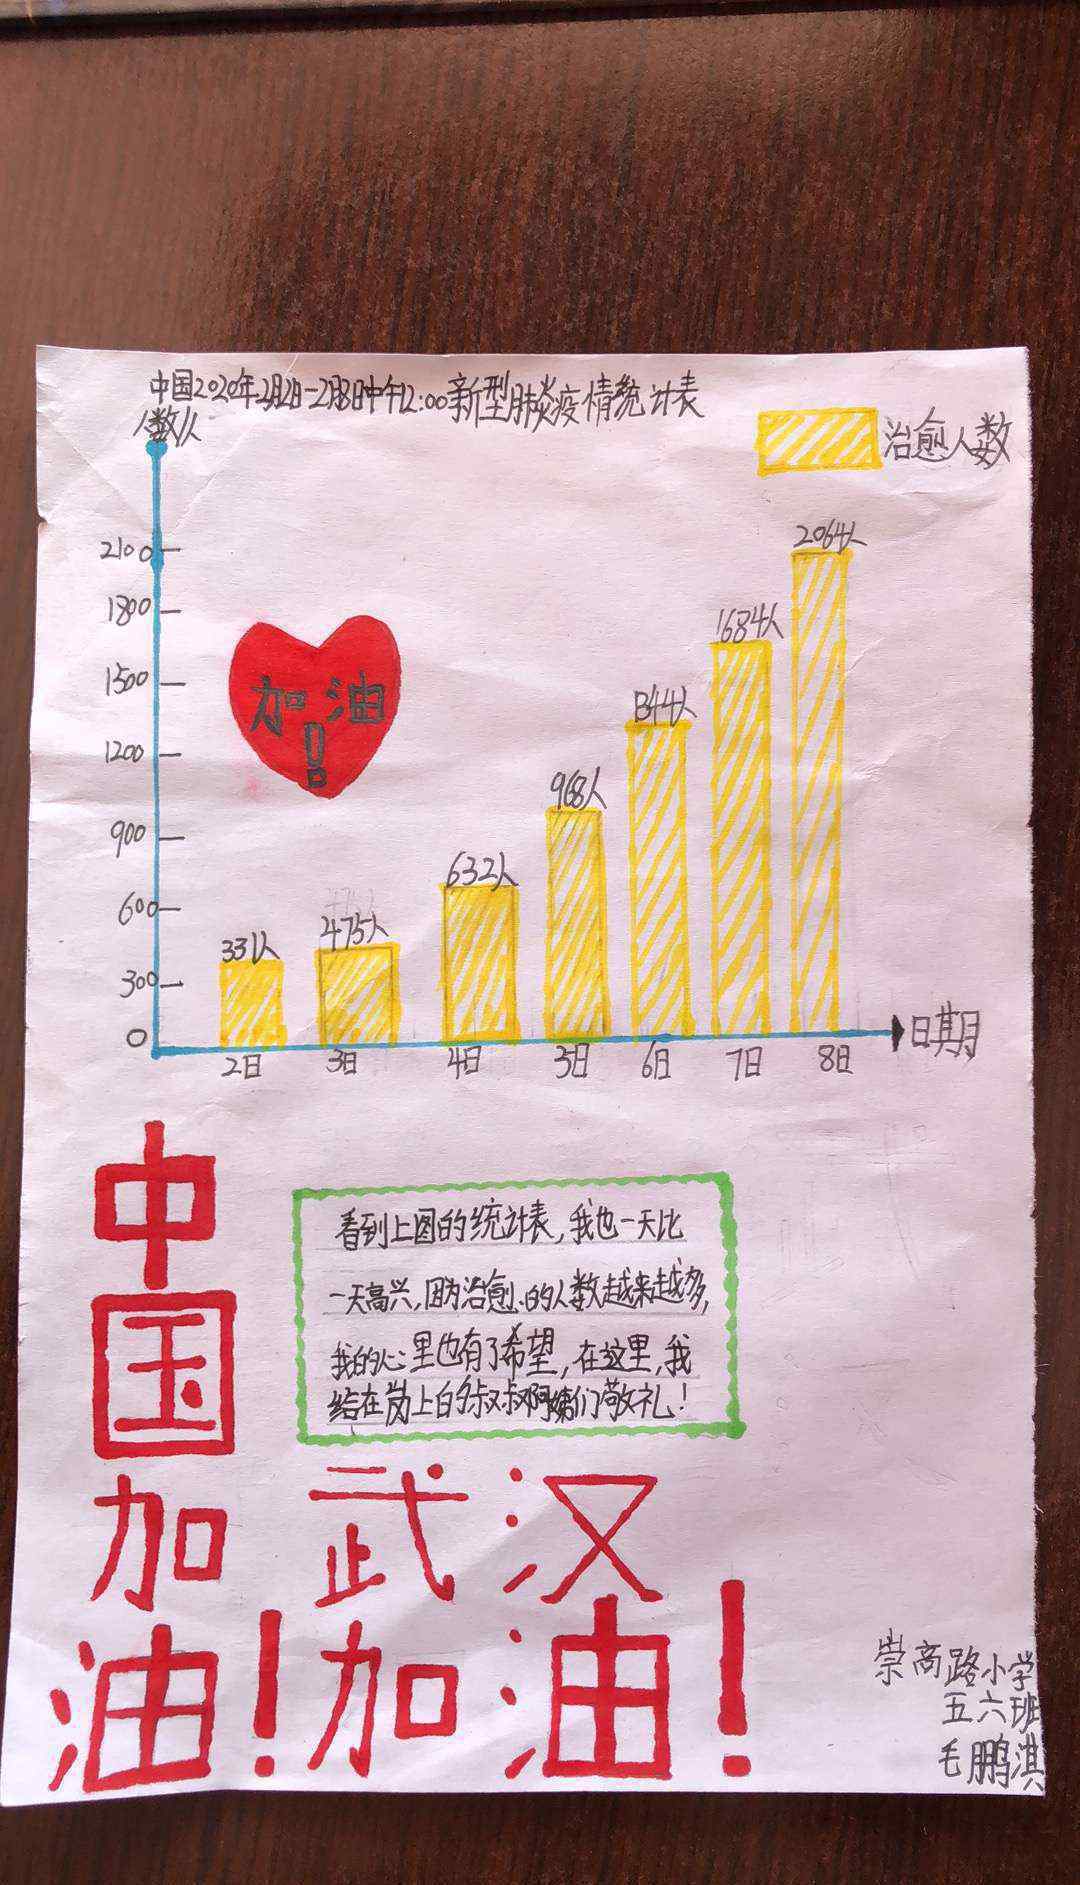 中国2020年2月2日-2月8日中午12:00新型肺炎疫情统计表
人数/人
治愈人数
2100
1800
1500
1200
900
600
300
0
加油
!
331人
475人
632人
968人
1344人
1684人
2064人
2日
3日
4日
5日
6日
7日
8日
日期
看到上图的统计表,我也一天比
一天高兴,因为治愈的人数越来越多,
我的心里也有了希望,在这里,我
给在岗上的叔叔阿姨们敬礼!
中国加油!
武汉
加油!
崇高路小学
五六班
毛鹏淇